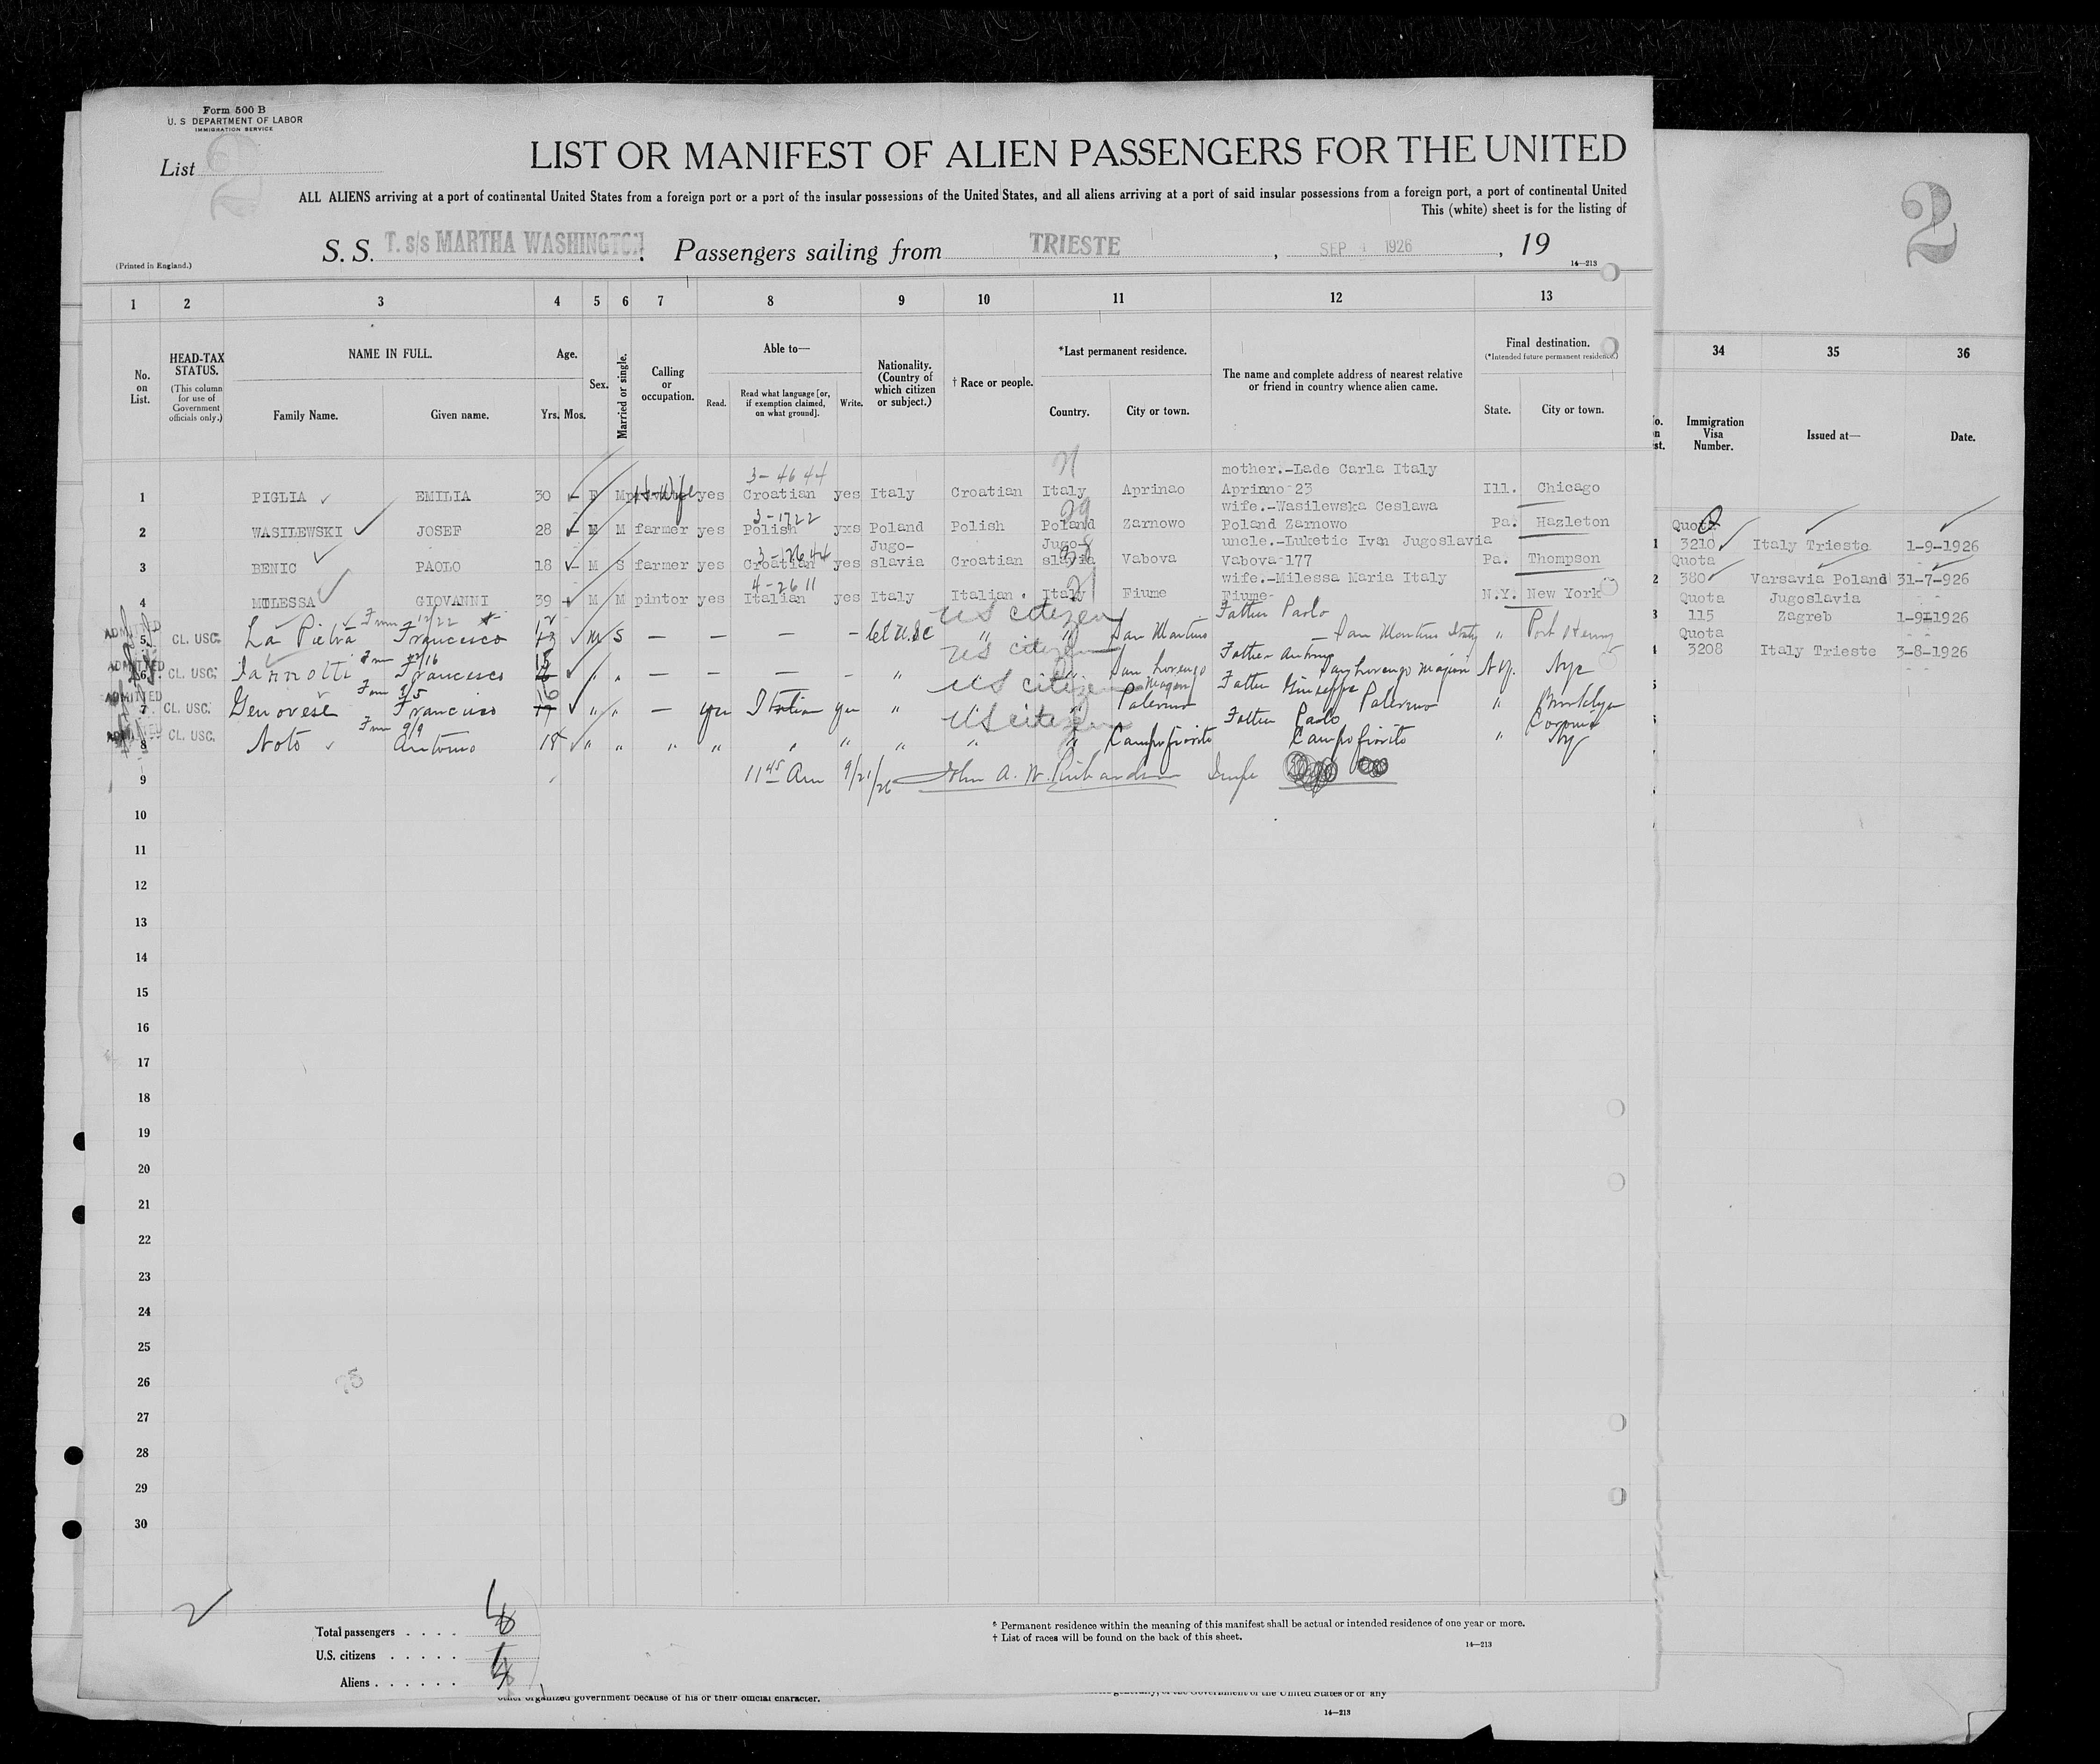 Form 500 B
U. S DEPARTMENT OF LABOR
IMMIGRATION SERVICE
List 2
LIST OR MANIFEST OF ALIEN PASSENGERS FOR THE UNITED
ALL ALIENS arriving at a port of continental United States from a foreign port or a port of the insular possessions of the United States, and all aliens arriving at a port of said insular possessions from a foreign port, a port of continental United
This (white) sheet is for the listing of
2
S. S. T. s/s MARTHA WASHINGTON Passengers sailing from TRIESTE, SEP 4 1926, 19
(Printed in England.)
14—213
1 2 3 4 5 6 7 8 9 10 11 12 13
34 35 36
No. on List.
HEAD-TAX STATUS.
(This column for use of Government officials only.)
NAME IN FULL.
Family Name. Given name.
Age.
Yrs. Mos.
Sex.
Married or single.
Calling or occupation.
Able to—
Read. Read what language [or, if exemption claimed, on what ground]. Write.
Nationality. (Country of which citizen or subject.)
† Race or people.
*Last permanent residence.
Country. City or town.
The name and complete address of nearest relative or friend in country whence alien came.
Final destination.
(*Intended future permanent residence.)
State. City or town.
Immigration Visa Number.
Issued at—
Date.
3-4644 21 mother.-Lade Carla Italy
1 PIGLIA EMILIA 30 F M H-Wife yes Croatian yes Italy Croatian Italy Aprinao Aprinno 23 Ill. Chicago
3-1722 29 wife.-Wasilewska Ceslawa
2 WASILEWSKI JOSEF 28 M M farmer yes Polish yxs Poland Polish Poland Zarnowo Poland Zarnowo Pa. Hazleton
3-12644 uncle.-Luketic Ivan Jugoslavia
3 BENIC PAOLO 18 M S farmer yes Croatian yes Jugo-slavia Croatian Jugo-slavia Vabova Vabova 177 Pa. Thompson
4-2611 21 wife.-Milessa Maria Italy
4 MILESSA GIOVANNI 39 M M pintor yes Italian yes Italy Italian Italy Fiume Fiume- N.Y. New York
12/22 US citizen Father Paolo
ADMITTED 5 CL. USC. La Pietra Francesco M S — — — — San Martino San Martino Italy " Port Henry
US citizen Father Antonio
ADMITTED 6 CL. USC. Iannotti Francesco " " — — — — " San Lorenzo San Lorenzo Majiori N.Y. Nyc
US citizen Father Giuseppe
ADMITTED 7 CL. USC. Genovese Francesco 16 " " — yes Italian yes " " Palermo Palermo " Brooklyn
9/9 US citizen Father Paolo
8 CL. USC. Noto Antonio 18 " " " " " " " " " Campofiorito Campofiorito " Corona Ny
9 11 45 Am 9/21/26 John A. W. Richardson
10
11
12
13
14
15
16
17
18
19
20
21
22
23
24
25
26
27
28
29
30
Quota
1 3210 Italy Trieste 1-9-1926
Quota
2 380 Varsavia Poland 31-7-926
Quota Jugoslavia
3 115 Zagreb 1-9-1926
Quota
3208 Italy Trieste 3-8-1926
2
Total passengers . . . . 8
U.S. citizens . . . . .
Aliens . . . . . .
* Permanent residence within the meaning of this manifest shall be actual or intended residence of one year or more.
† List of races will be found on the back of this sheet.
14—213
other organized government because of his or their official character.
of the Government of the United States or of any
14—213